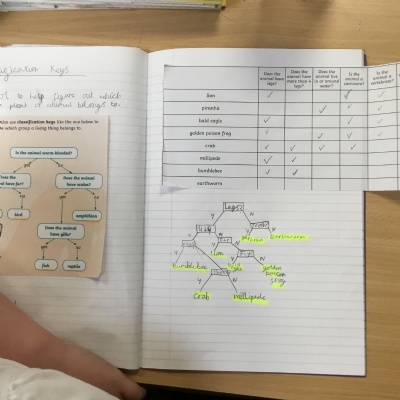 Classification Keys
to help figure out which
plant or animal belongs to.
use classification keys like the one below to
which group a living thing belongs to.
Is the animal warm-blooded?
yes
no
Does the animal have scales?
yes
no
bird
amphibian
Does the animal have gills?
yes
no
fish
reptile
Does the animal have legs?
Does the animal have more than 4 legs?
Does the animal live in or around water?
Is the animal a carnivore?
Is the animal a vertebrate?
lion ✓ ✓ ✓
piranha ✓ ✓ ✓
bald eagle ✓ ✓ ✓
golden poison frog ✓ ✓ ✓ ✓
crab ✓ ✓ ✓ ✓
millipede ✓ ✓
bumblebee ✓ ✓
earthworm
Legs?
Y
N
piranha
earthworm
Y
N
lion
Fly?
bald eagle
golden poison frog
bumblebee
Y
N
Crab
millipede